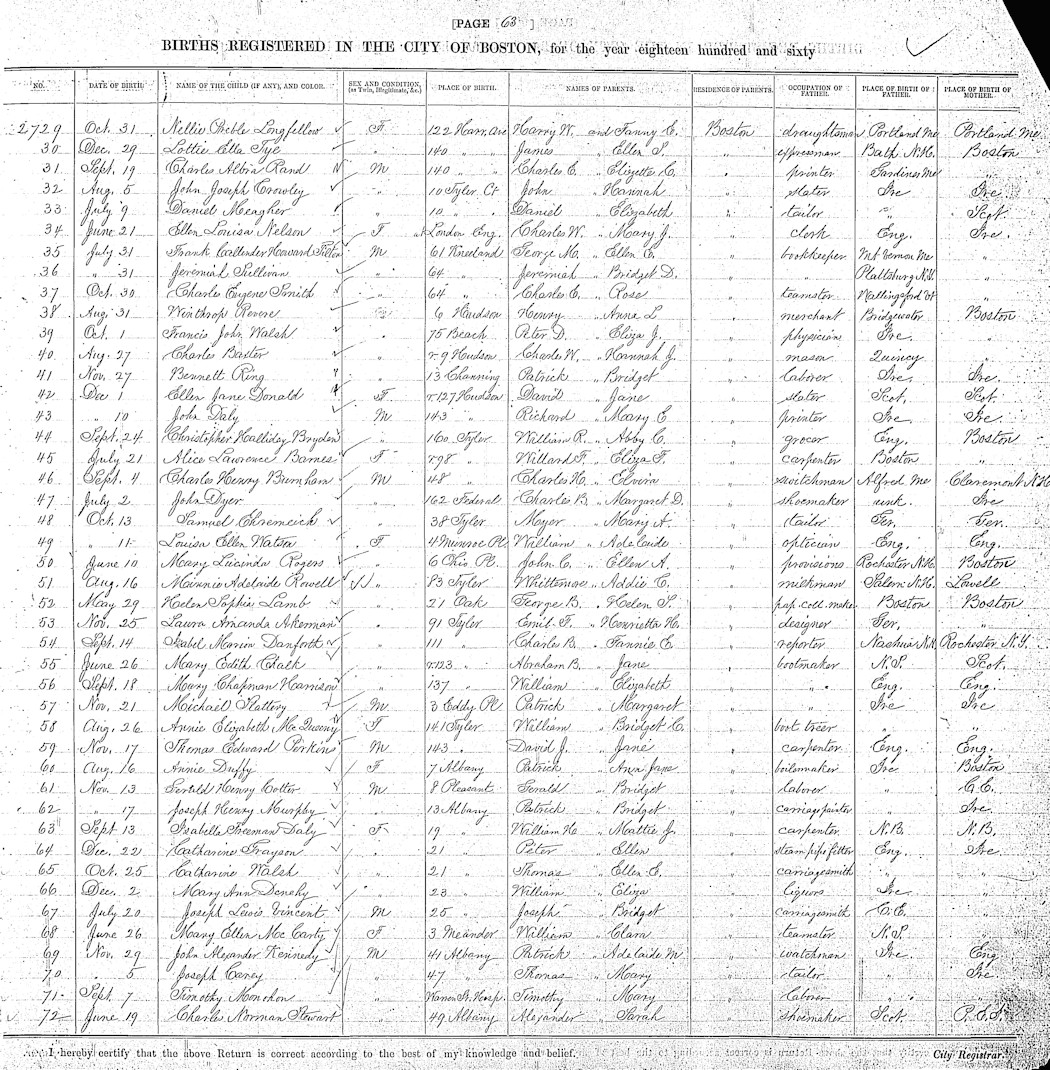 [PAGE 63 ]
BIRTHS REGISTERED IN THE CITY OF BOSTON, for the year eighteen hundred and sixty
NO. DATE OF BIRTH. NAME OF THE CHILD (IF ANY), AND COLOR. SEX AND CONDITION, (as Twin, Illegitimate, &c.) PLACE OF BIRTH. NAMES OF PARENTS. RESIDENCE OF PARENTS. OCCUPATION OF FATHER. PLACE OF BIRTH OF FATHER. PLACE OF BIRTH OF MOTHER.
2729 Oct. 31 Nellie Preble Longfellow F 122 Harr. Ave Harry W. and Fanny E. Boston draughtsman Portland Me Portland Me
30 Dec. 29 Lottie Etta Tye " 140 " James " Ellen S. " expressman Bath N.H. Boston
31 Sept. 19 Charles Albra Rand M 140 " Charles E. " Elizette C. " printer Gardiner Me "
32 Aug. 5 John Joseph Crowley " 10 Tyler Ct John " Hannah " slater Ire Ire
33 July 9 Daniel Meagher " 10 " Daniel " Elizabeth " tailor " Scot.
34 June 21 Ellen Louisa Nelson F London Eng. Charles W. " Mary J. " clerk Eng. Ire.
35 July 31 Frank Callender Howard Tilton M 61 Kneeland George M. " Ellen C. " bookkeeper Mt Vernon Me "
36 " 31 Jeremiah Sullivan " 64 " Jeremiah " Bridget D. " Plattsburg N.Y. "
37 Oct. 30 Charles Eugene Smith " 64 " Charles E. " Rose " teamster Wallingford Vt "
38 Aug. 31 Winthrop Revere " 6 Hudson Henry " Anna L " merchant Bridgewater Boston
39 Oct. 1 Francis John Walsh " 75 Beach Peter D. " Eliza J. " physician Ire. "
40 Aug. 27 Charles Baxter " r. 9 Hudson Charles W. " Hannah J. " mason Quincy "
41 Nov. 27 Bennett Ring " 13 Channing Patrick " Bridget " laborer Ire. Ire.
42 Dec 1 Ellen Jane Donald F r. 127 Hudson David " Jane " slater Scot. Scot.
43 " 10 John Daly M 143 " Richard " Mary E " printer Ire Ire
44 Sept. 24 Christopher Halliday Bryden " 160 Tyler William R. " Abby C. " grocer Eng. Boston
45 July 21 Alice Lawrence Barnes F r. 98 " Willard F. " Eliza F. " carpenter Boston "
46 Sept. 4 Charles Henry Burnham M 48 " Charles H. " Elvira " switchman Alfred Me Claremont N.H.
47 July 2 John Dyer " 162 Federal Charles B. " Margaret D. " shoemaker unk. Ire
48 Oct. 13 Samuel Ehremeich " 38 Tyler Meyer " Mary A. " tailor Ger. Ger.
49 " 11 Louisa Ellen Watson F 4 Munroe Pl William " Adelaide " optician Eng. Eng.
50 June 10 Mary Lucinda Rogers " 6 Ohio Pl. John C. " Ellen A. " provisions Rochester N.H. Boston
51 Aug. 16 Minnie Adelaide Rowell " 83 Tyler Whittemore " Addie C. " milkman Salem N.H. Lowell
52 May 29 Helen Sophia Lamb " 21 Oak George B. " Helen S. " pap. coll. maker Boston Boston
53 Nov. 25 Laura Amanda Akerman " 91 Tyler Emil F. " Henrietta H. " designer Ger. "
54 Sept. 14 Izabel Marion Danforth " 111 " Charles B. " Fannie E " reporter Nashua N.H. Rochester N.Y.
55 June 26 Mary Edith Chalk " r. 123 " Abraham B. " Jane " bootmaker N.S. Scot.
56 Sept. 18 Mary Chapman Harrison " 137 " William " Elizabeth " " Eng Eng.
57 Nov. 21 Michael Flattery M 3 Eddy Pl Patrick " Margaret " " Ire Ire
58 Aug. 26 Annie Elizabeth McQueeny F 141 Tyler William " Bridget C. " boot treer " "
59 Nov. 17 Thomas Edward Perkins M 143 " David J. " Jane " carpenter Eng. Eng.
60 Aug. 16 Annie Duffy F 7 Albany Patrick " Ann Jane " boilermaker Ire Boston
61 Nov. 13 Gerald Henry Cotter M 8 Pleasant Gerald " Bridget " laborer " C.E.
62 " 17 Joseph Henry Murphy " 13 Albany Patrick " Bridget " carriage painter " Ire.
63 Sept 13 Izabella Freeman Daly F 19 " William H " Mattie J. " carpenter N.B. N.B.
64 Dec. 22 Catharine Grayson " 21 " Peter " Ellen " steam pipe fitter Eng. Ire.
65 Oct. 25 Catharine Walsh " 21 " Thomas " Ellen E. " carriagesmith " "
66 Dec. 2 Mary Ann Denehy " 23 " William " Eliza " liquors Ire. "
67 July 20 Joseph Lewis Vincent M 25 " Joseph " Bridget " carriagesmith C.E. "
68 June 26 Mary Ellen McCarty F 3 Meander William " Clara " teamster N.S. "
69 Nov. 29 John Alexander Kennedy M 41 Albany Patrick " Adelaide M. " watchman Ire. Eng
70 " 5 Joseph Carey " 47 " Thomas " Mary " tailor " Ire
71 Sept. 7 Timothy Monohon " Warren St. Hosp. Timothy " Mary " laborer " "
72 June 19 Charles Norman Stewart " 49 Albany Alexander " Sarah " shoemaker Scot. P.E.I.
I hereby certify that the above Return is correct according to the best of my knowledge and belief. City Registrar.